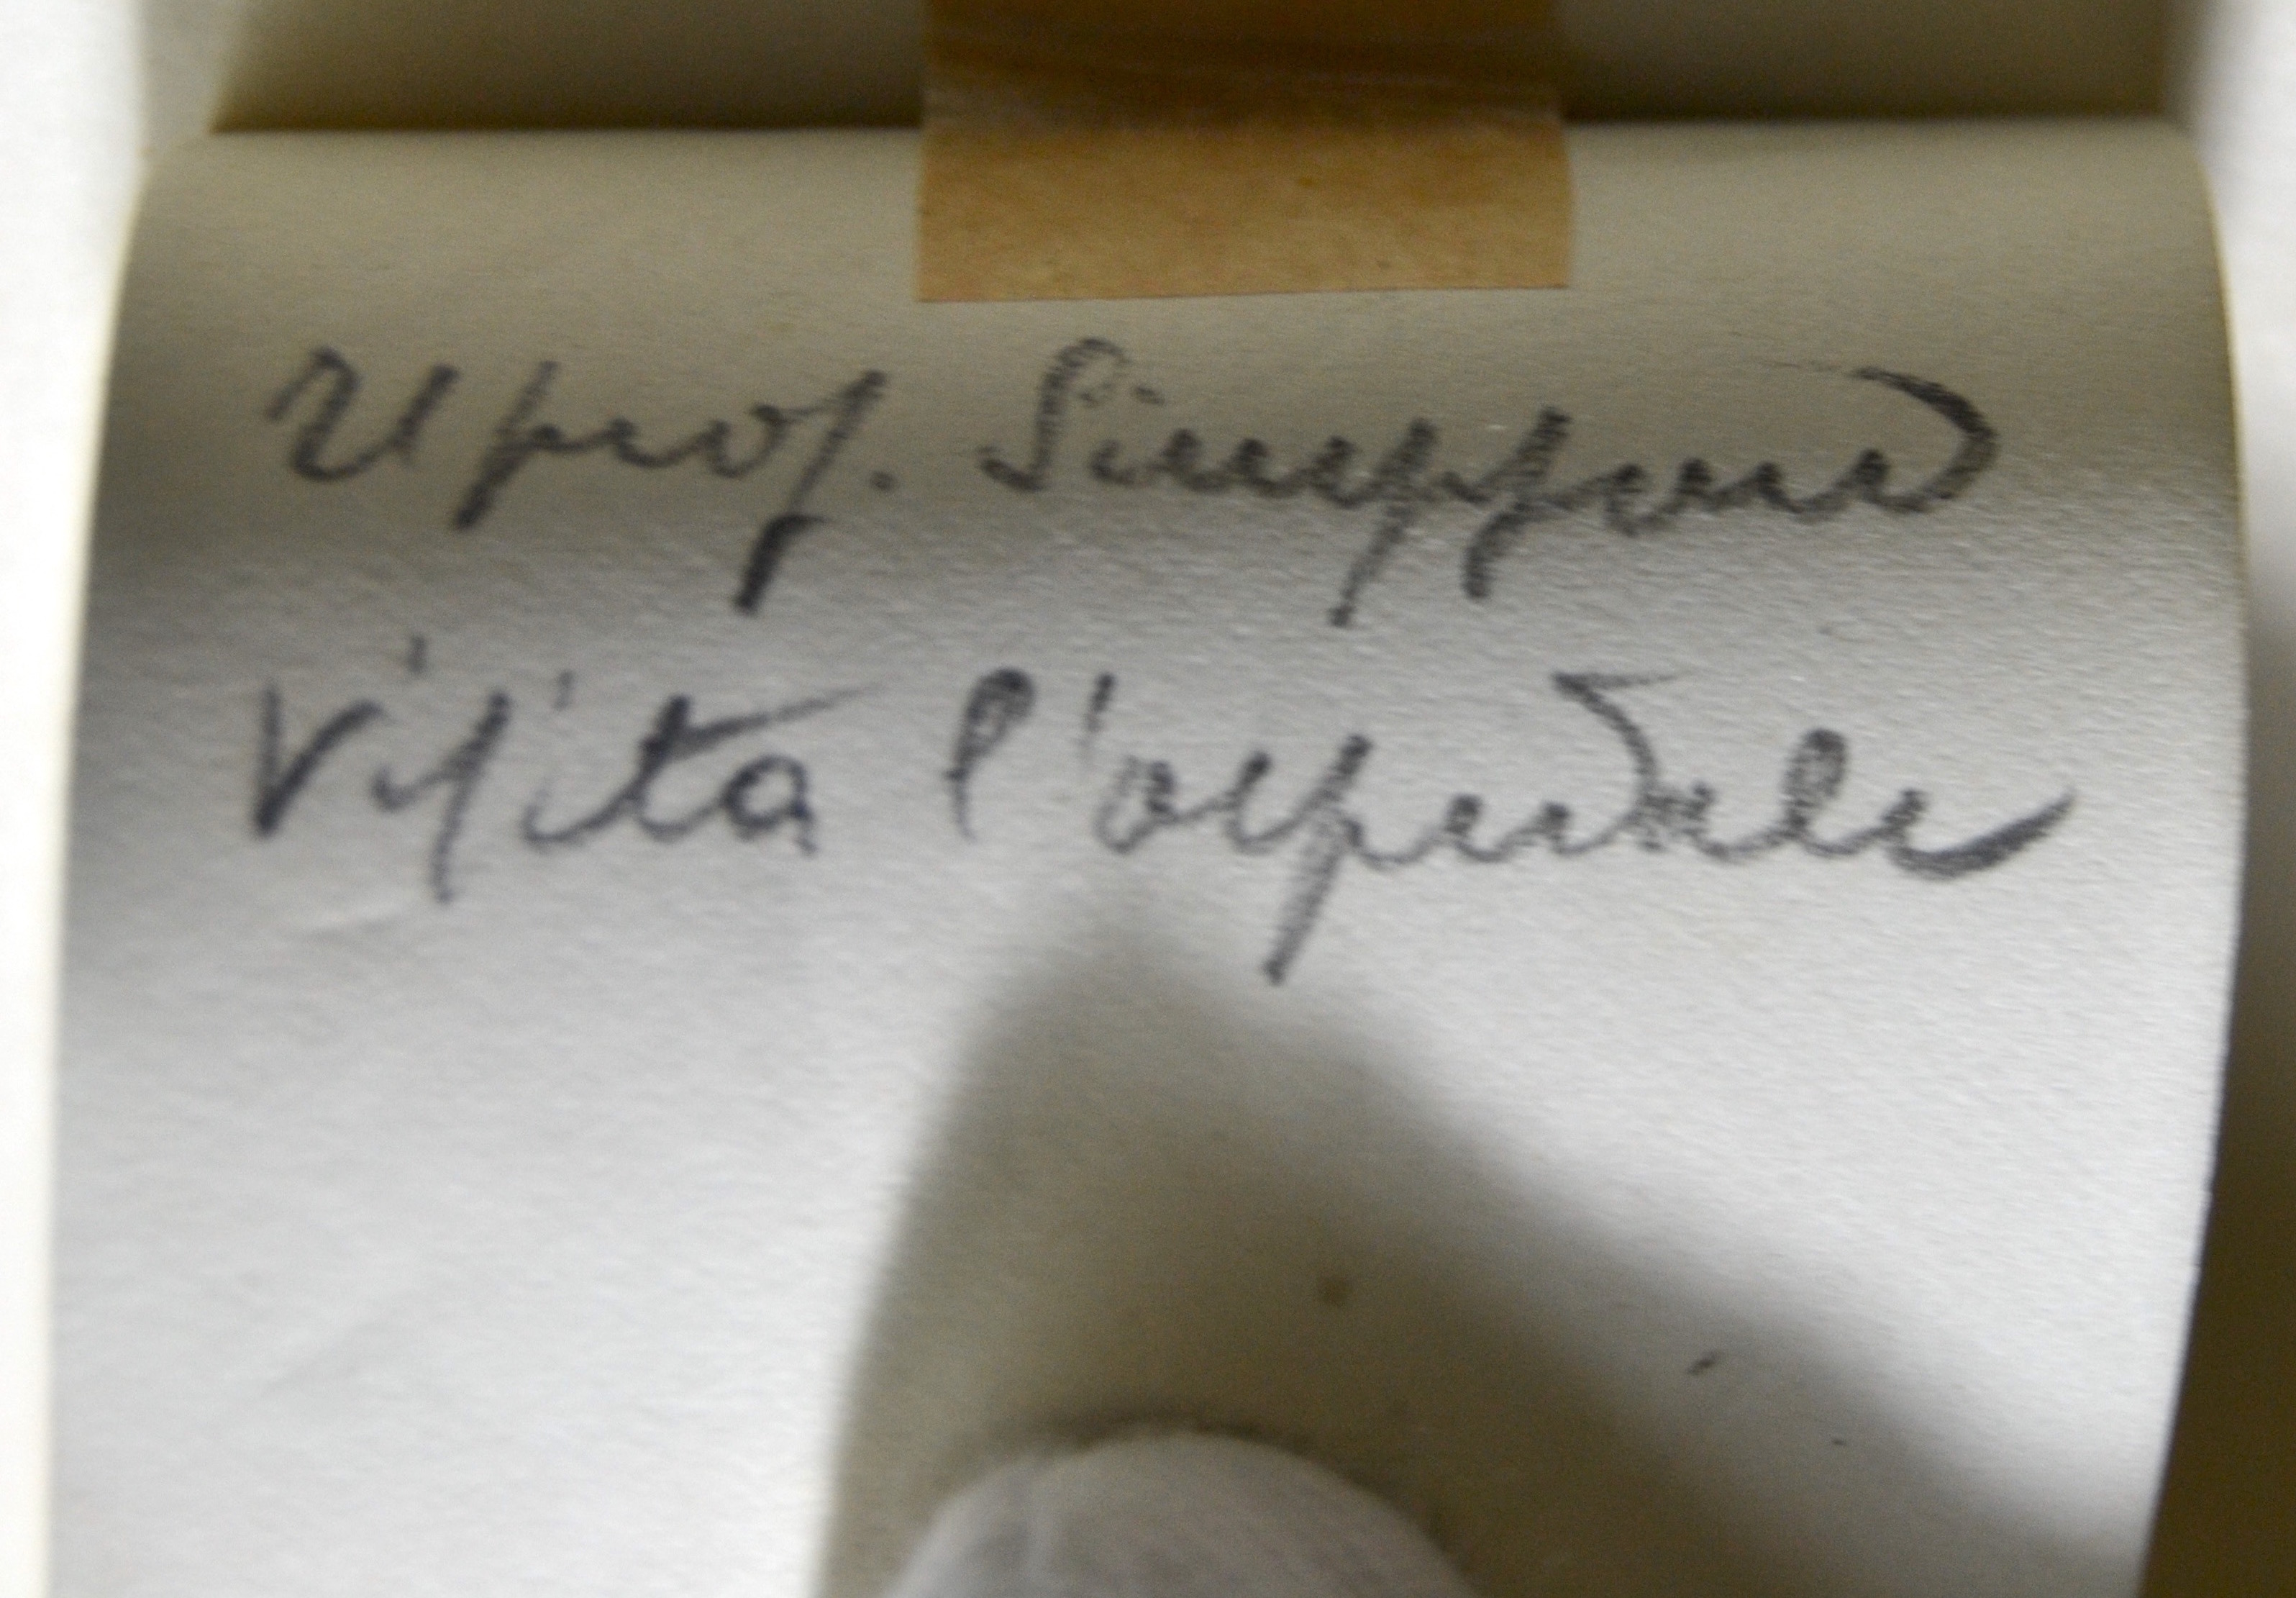 Il prof. Simpson
visita l'ospedale